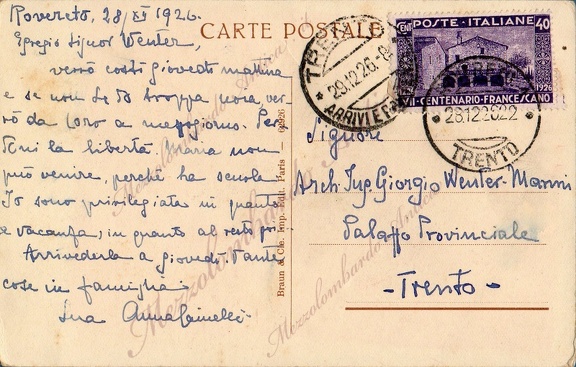 CARTE POSTALE
Rovereto, 28/XI 1926.
Egregio Signor Wenter,
verrò costì giovedì mattina
e se non Le dò troppa noia, ver
rò da loro a mezzogiorno. Per
doni la libertà. Maria non
può venire, perchè ha scuola
Io sono privilegiata in quanto
a vacanza, in quanto al resto poi
Arrivederla a giovedì. Tante
cose in famiglia
Sua Anna
Braun & Cie, Imp.-Édit. Paris — 62926
CENT POSTE·ITALIANE 40
1926
VII·CENTENARIO·FRANCESCANO
TRENTO
29.12.26
* ARRIVI E
28.12.2622
TRENTO
Signore
Arch. Ing. Giorgio Wenter-Marini
Palazzo Provinciale
-Trento-
Mezzolombardo
Mezzolombardo
Mezzolombardo